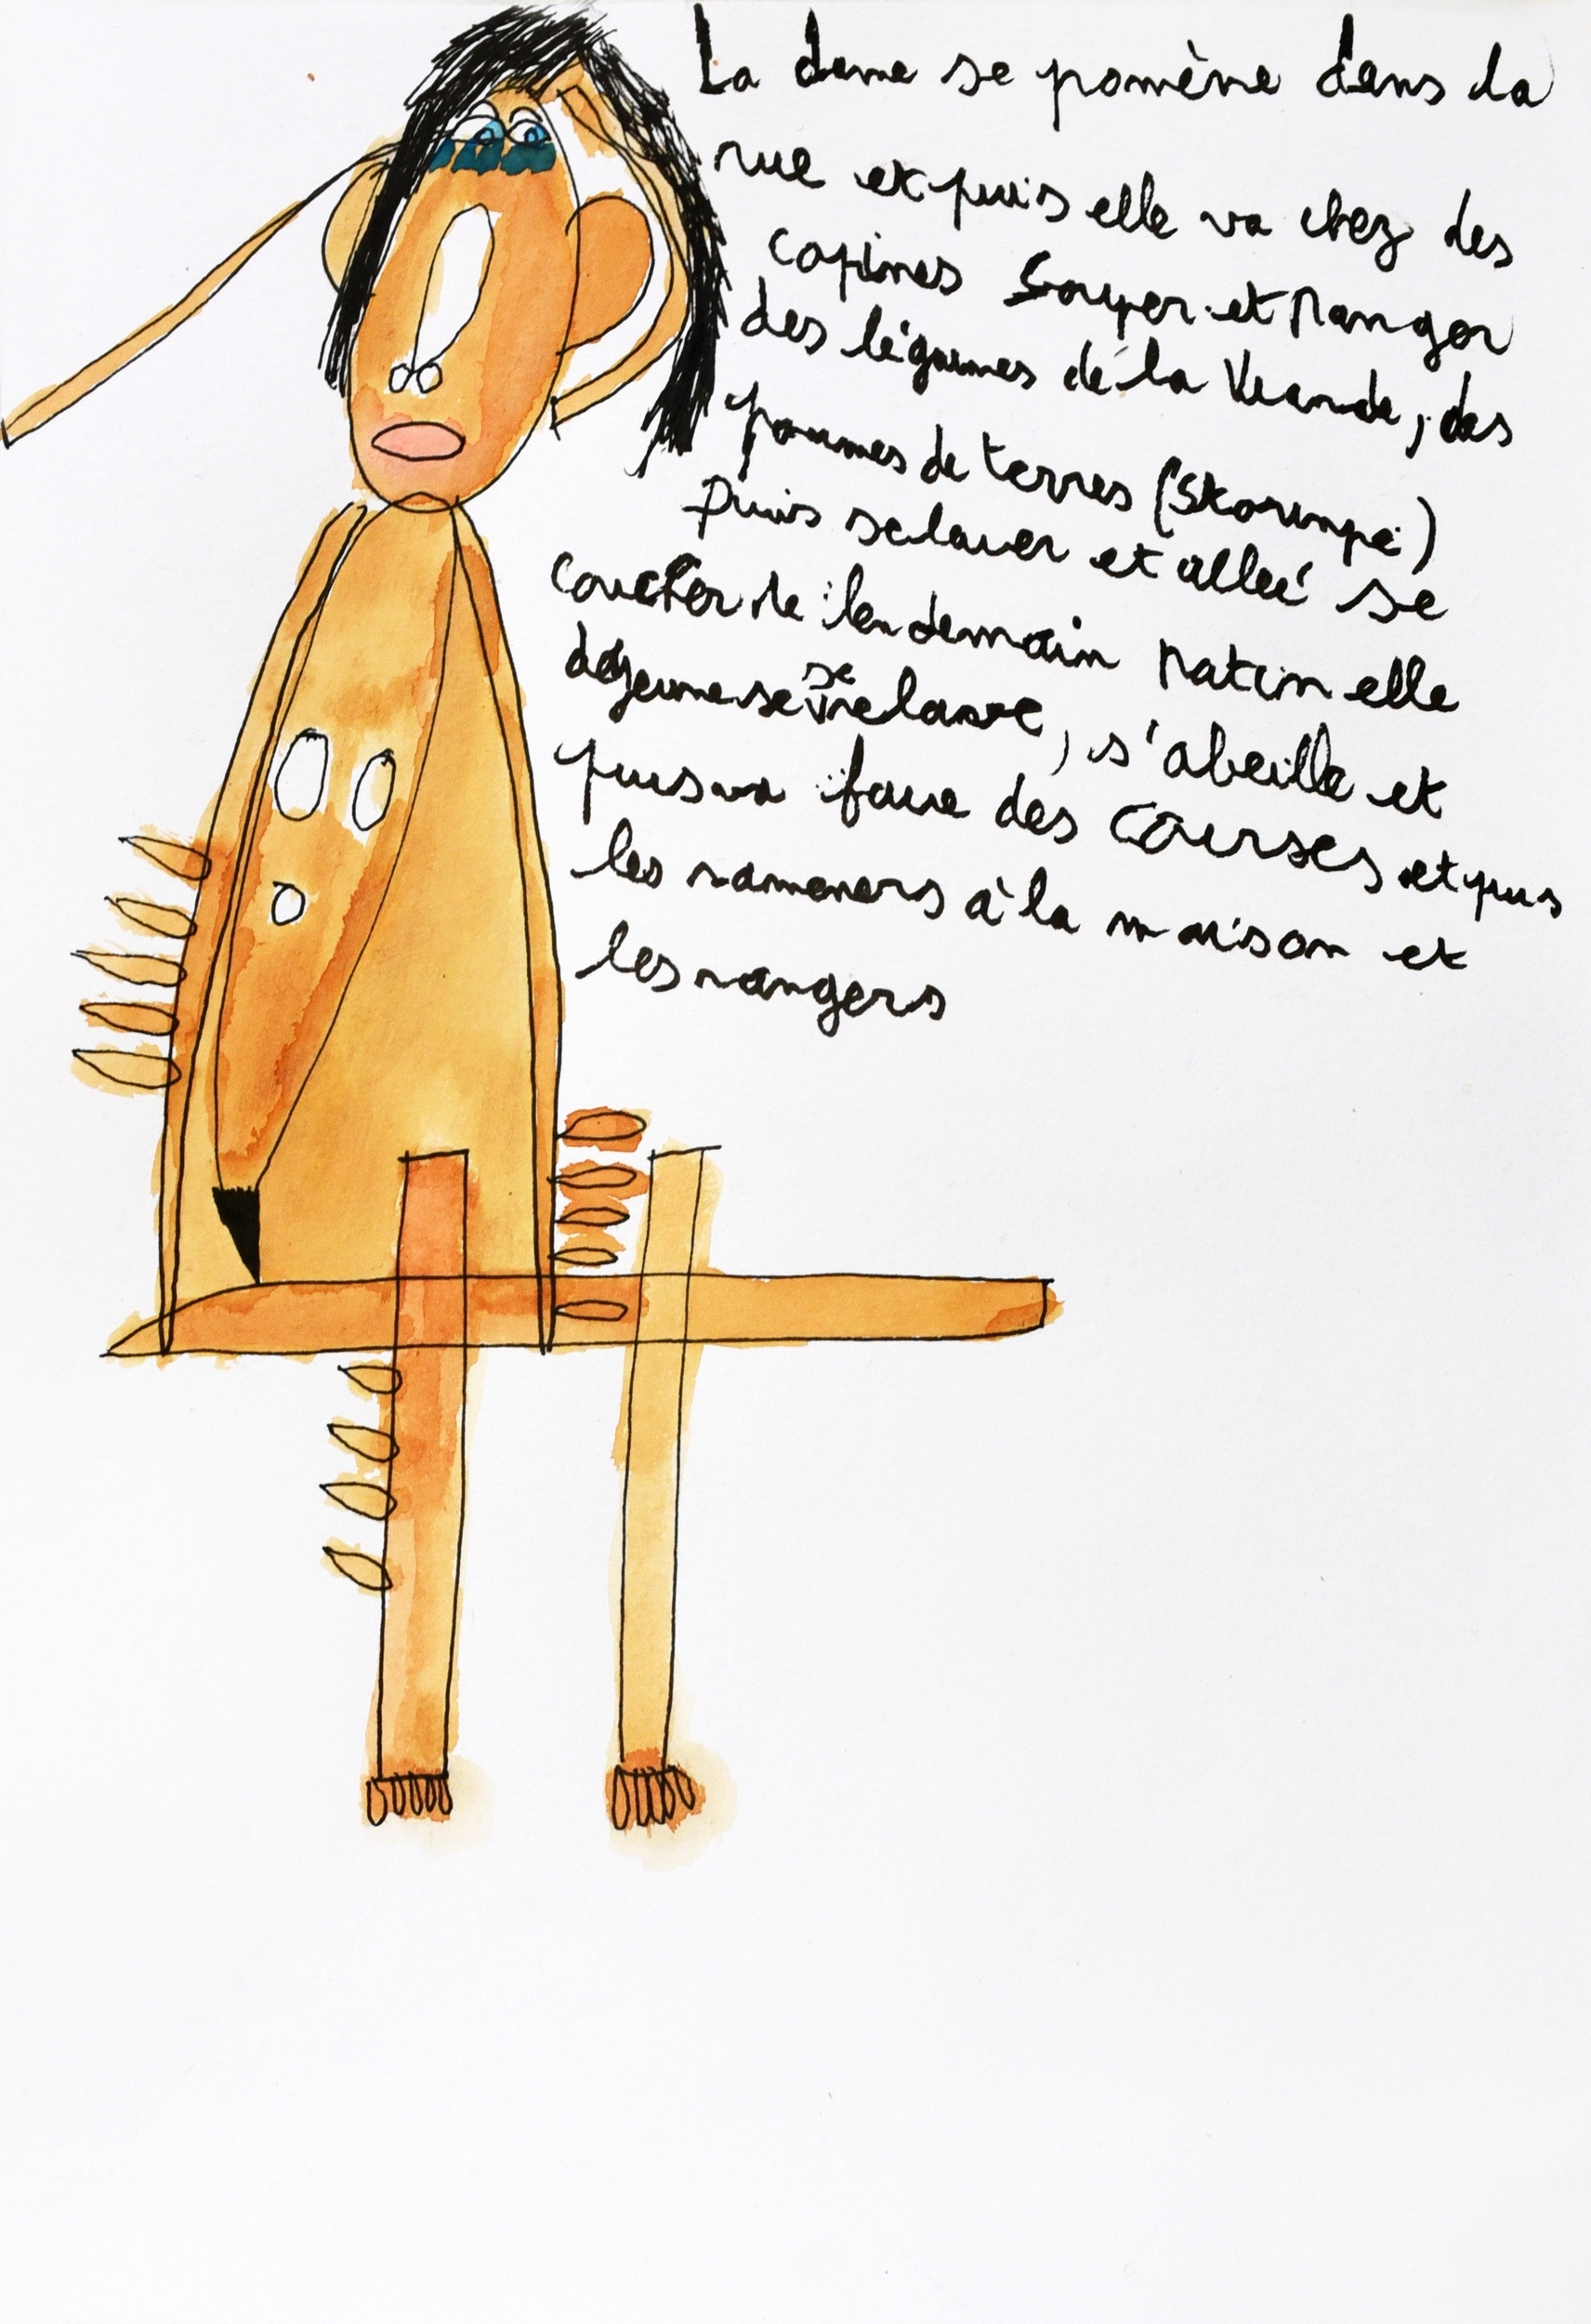 La dame se pomène dans la
rue et puis elle va chez des
copines Souper et Manger
des légumes de la Viande, des
pommes de terres (Skormpe)
Puis se laver et alleé se
coucher le lendemain Matin elle
déjeune se lave, s'abeille et
puis va faire des Courses et puis
les rameners à la maison et
les rangers